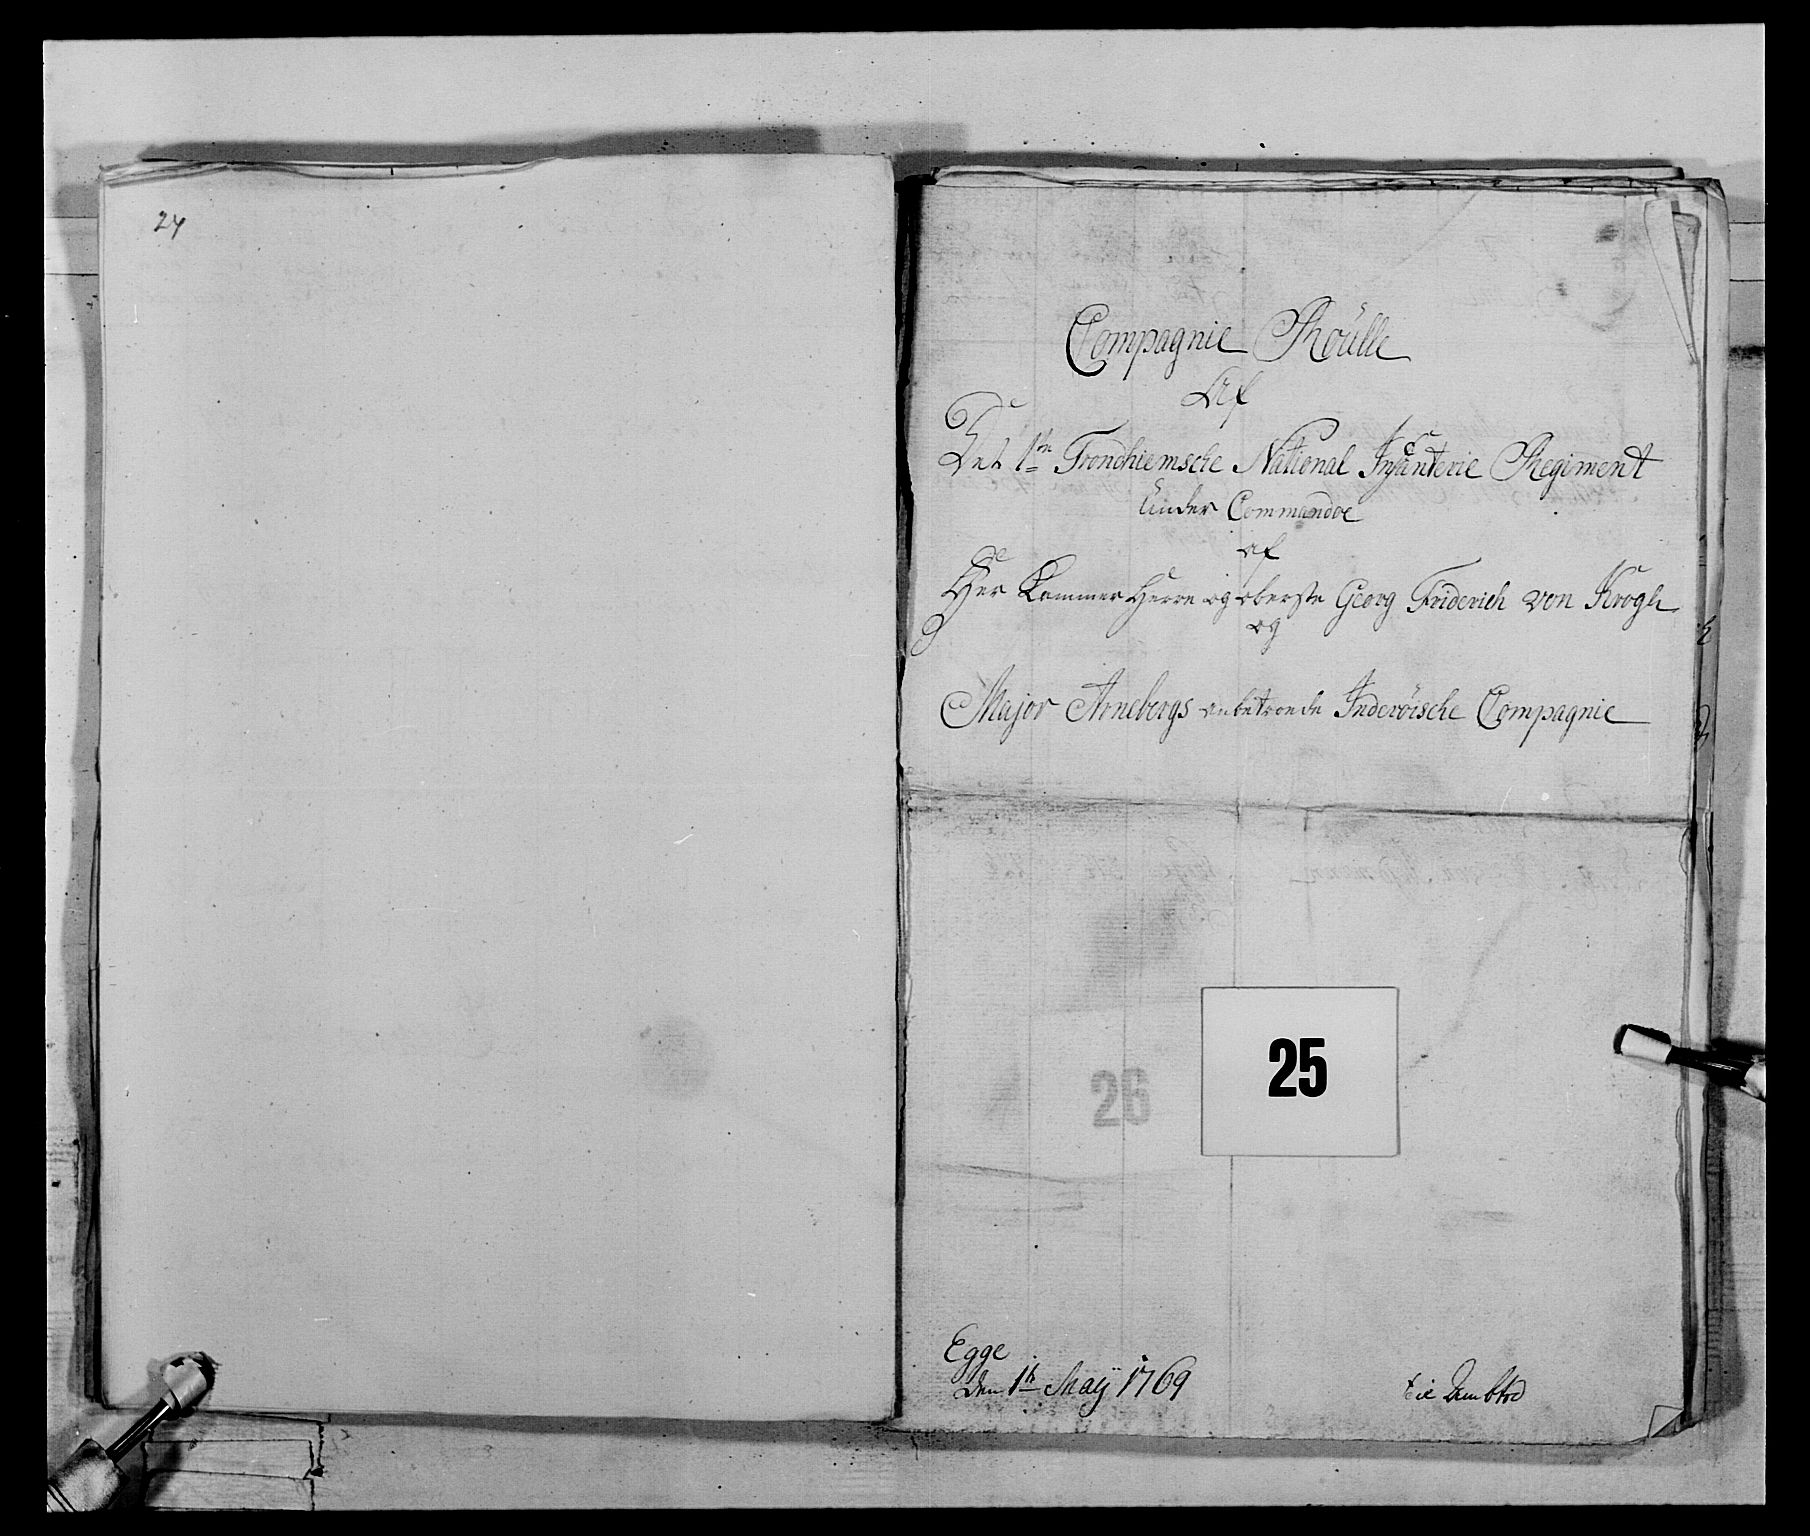 24
Compagnie Roülle
Af
Det 1ste Trondhiemsche National Infanterie Regiment
Under Commandoe
af
Her Kammer Herre og oberste Georg Friderich von Krogh
og
Major Arnebergs anbetroede Inderöische Compagnie
26
25
Egge
den 1te Maÿ 1769